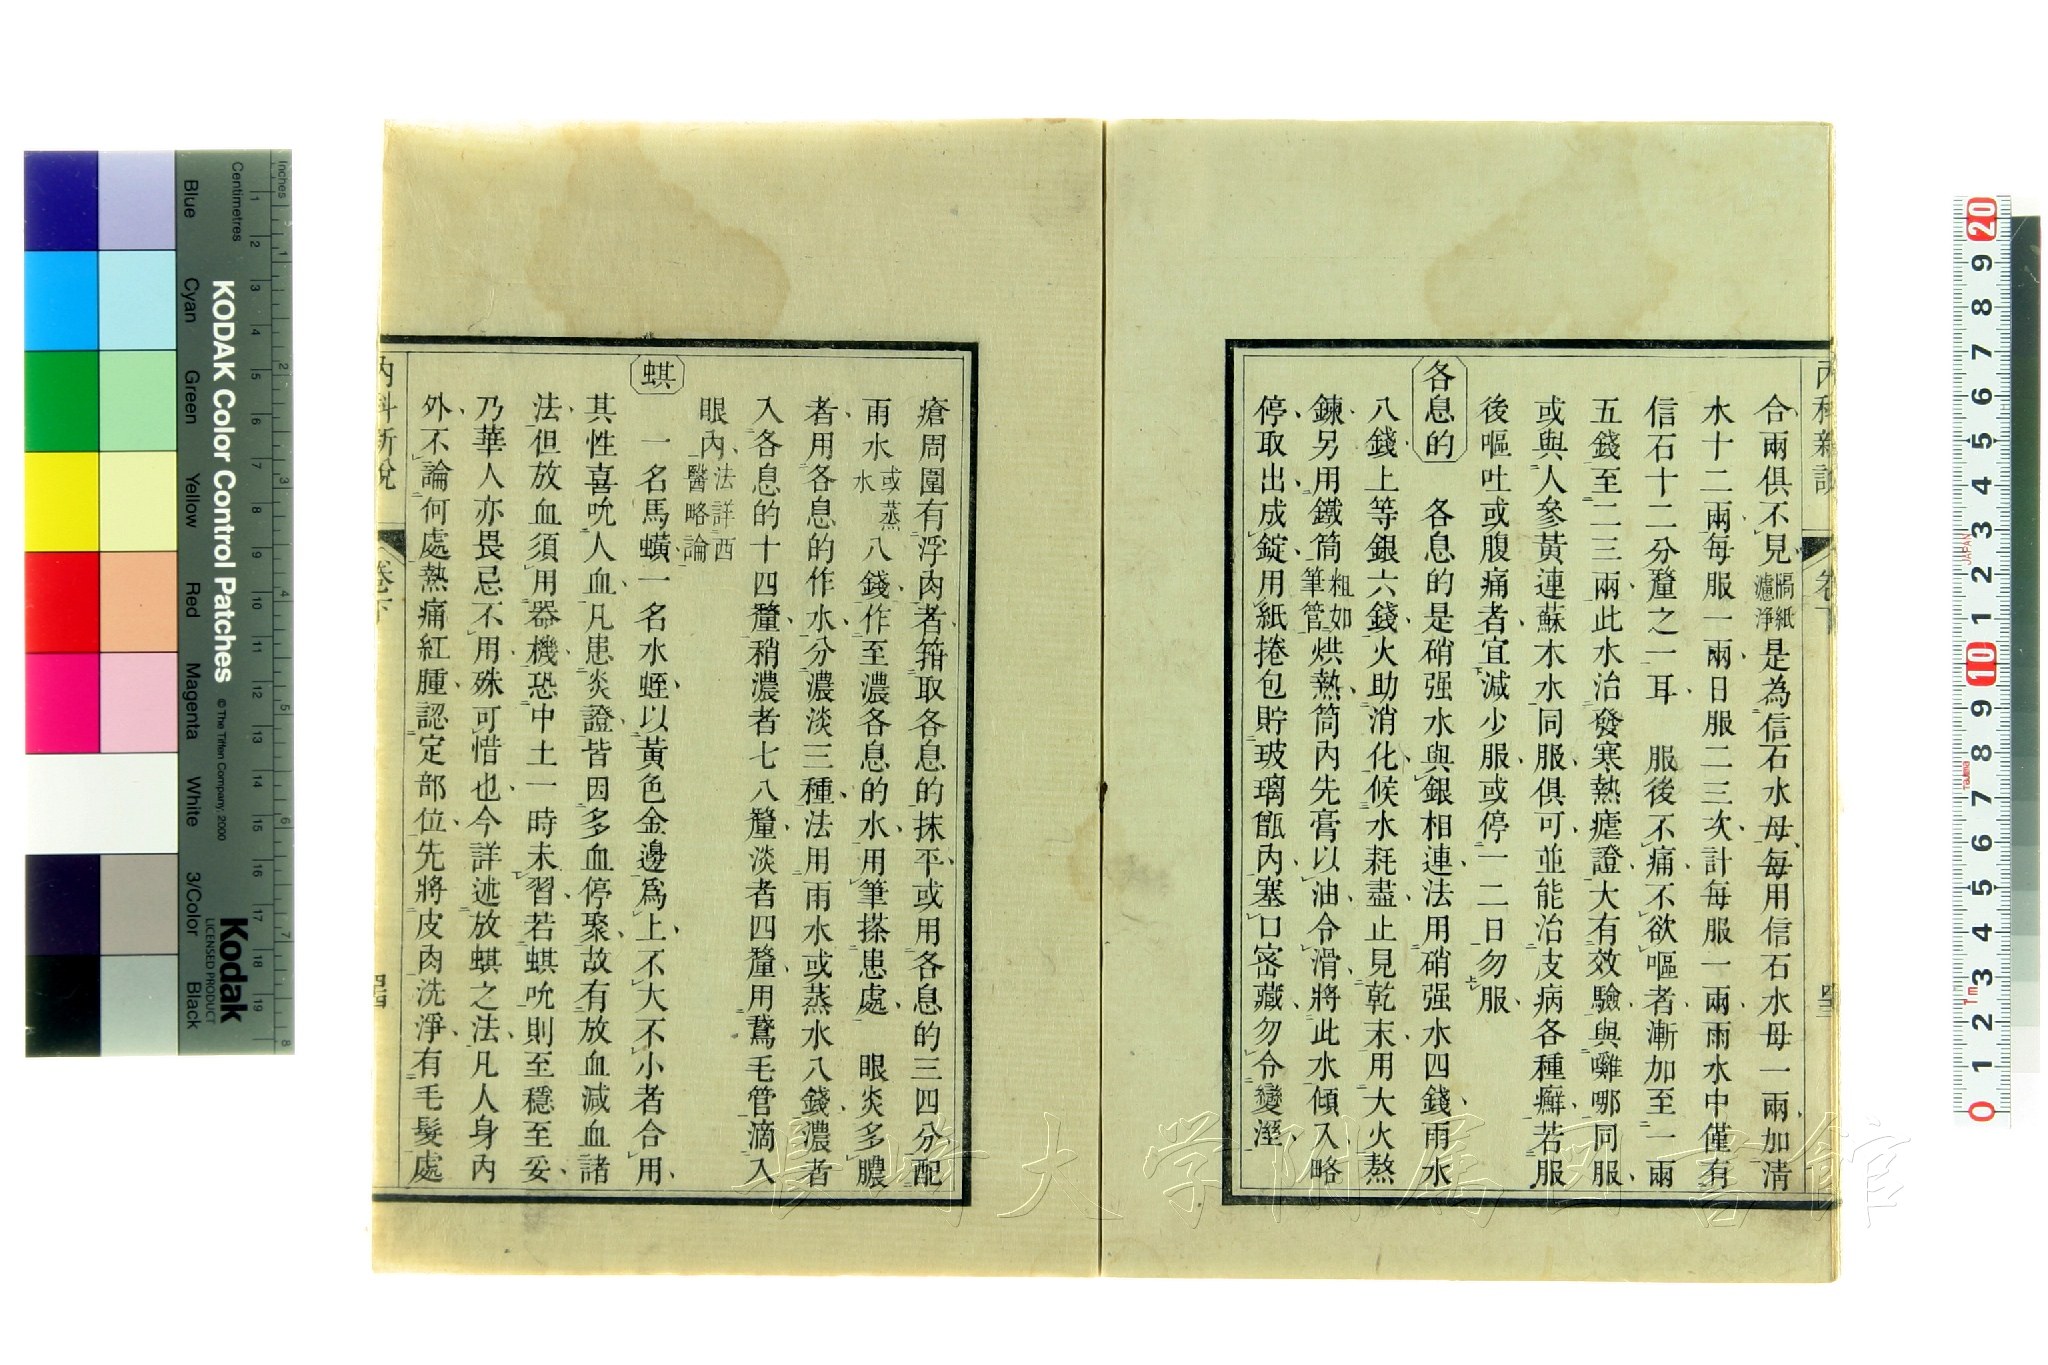 內科新說 卷下
合兩俱不見隔紙濾淨是為信石水母每用信石水母一兩加淸
水十二兩每服一兩日服二三次計每服一兩雨水中僅有
信石十二分釐之一耳 服後不痛不欲嘔者漸加至一兩
五錢至二三兩此水治發寒熱瘧證大有效驗與囇哪同服
或與人參黃連蘇木水同服俱可並能治皮病各種癬若服
後嘔吐或腹痛者宜減少服或停一二日勿服
各息的 各息的是硝强水與銀相連法用硝强水四錢雨水
八錢上等銀六錢火助消化候水耗盡止見乾末用大火熬
鍊另用鐵筒粗如筆管烘熱筒內先膏以油令滑將此水傾入略
停取出成錠用紙捲包貯玻璃甑內塞口密藏勿令變溼
瘡周圍有浮肉者箝取各息的抹平或用各息的三四分配
雨水或蒸水八錢作至濃各息的水用筆搽患處 眼炎多膿
者用各息的作水分濃淡三種法用雨水或蒸水八錢濃者
入各息的十四釐稍濃者七八釐淡者四釐用鵞毛管滴入
眼內法詳西醫略論
蜞 一名馬蟥一名水蛭以黃色金邊爲上不大不小者合用
其性喜吮人血凡患炎證皆因多血停聚故有放血減血諸
法但放血須用器機恐中土一時未習若蜞吮則至穩至妥
乃華人亦畏忌不用殊可惜也今詳述放蜞之法凡人身內
外不論何處熱痛紅腫認定部位先將皮肉洗淨有毛髮處
內科新說 卷下 四十四
長崎大学附属図書館
KODAK Color Control Patches
© The Tiffen Company, 2000
Kodak
LICENSED PRODUCT
Inches
Centimetres
Blue Cyan Green Yellow Red Magenta White 3/Color Black
1 2 3 4 5 6 7 8 9 10 11 12 13 14 15 16 17 18 19
1 2 3 4 5 6 7 8
20 9 8 7 6 5 4 3 2 1 10 9 8 7 6 5 4 3 2 1 0
JAPAN
Tajima